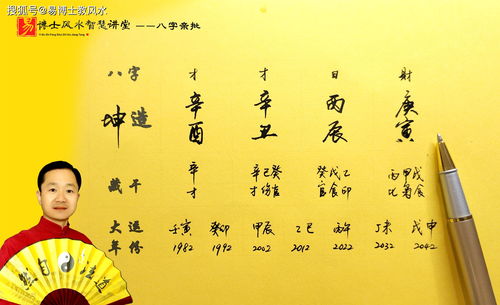 搜狐号@易博士救风水
易 博士风水智慧讲堂 ——八字亲批
八字 才 才 日 财
坤造 辛 辛 丙 庚
酉 丑 辰 寅
藏干 辛 辛己癸 癸戊乙 丙甲戊
才 才伤官 官食印 比枭食
大运 壬寅 癸卯 甲辰 乙巳 丙午 丁未 戊申
年份 1982 1992 2002 2012 2022 2032 2042
然自法道